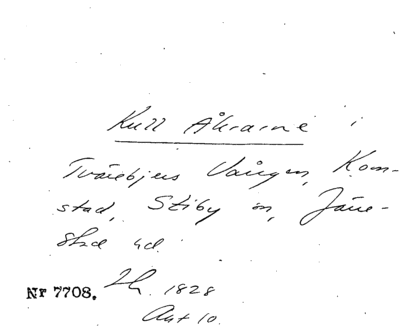 Kull Åkrarne i
Tvärebjers Vången, Kom-
stad, Stiby sn, Järre-
stad hd.
Nr 7708. Lh. 1828
Akt 10